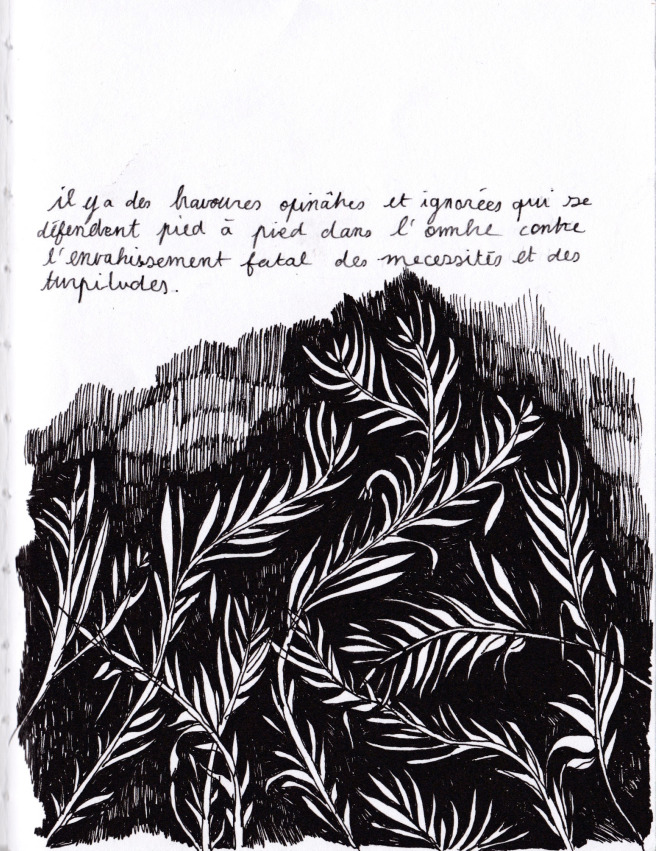 il y a des bravoures opinâtres et ignorées qui se
défendent pied à pied dans l'ombre contre
l'envahissement fatal des necessités et des
turpitudes.